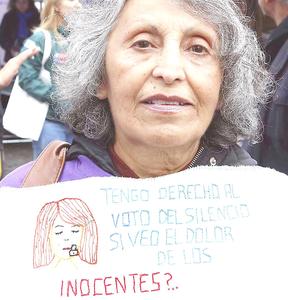 TENGO DERECHO AL
VOTO DEL SILENCIO
SI VEO EL DOLOR
DE LOS
INOCENTES?..